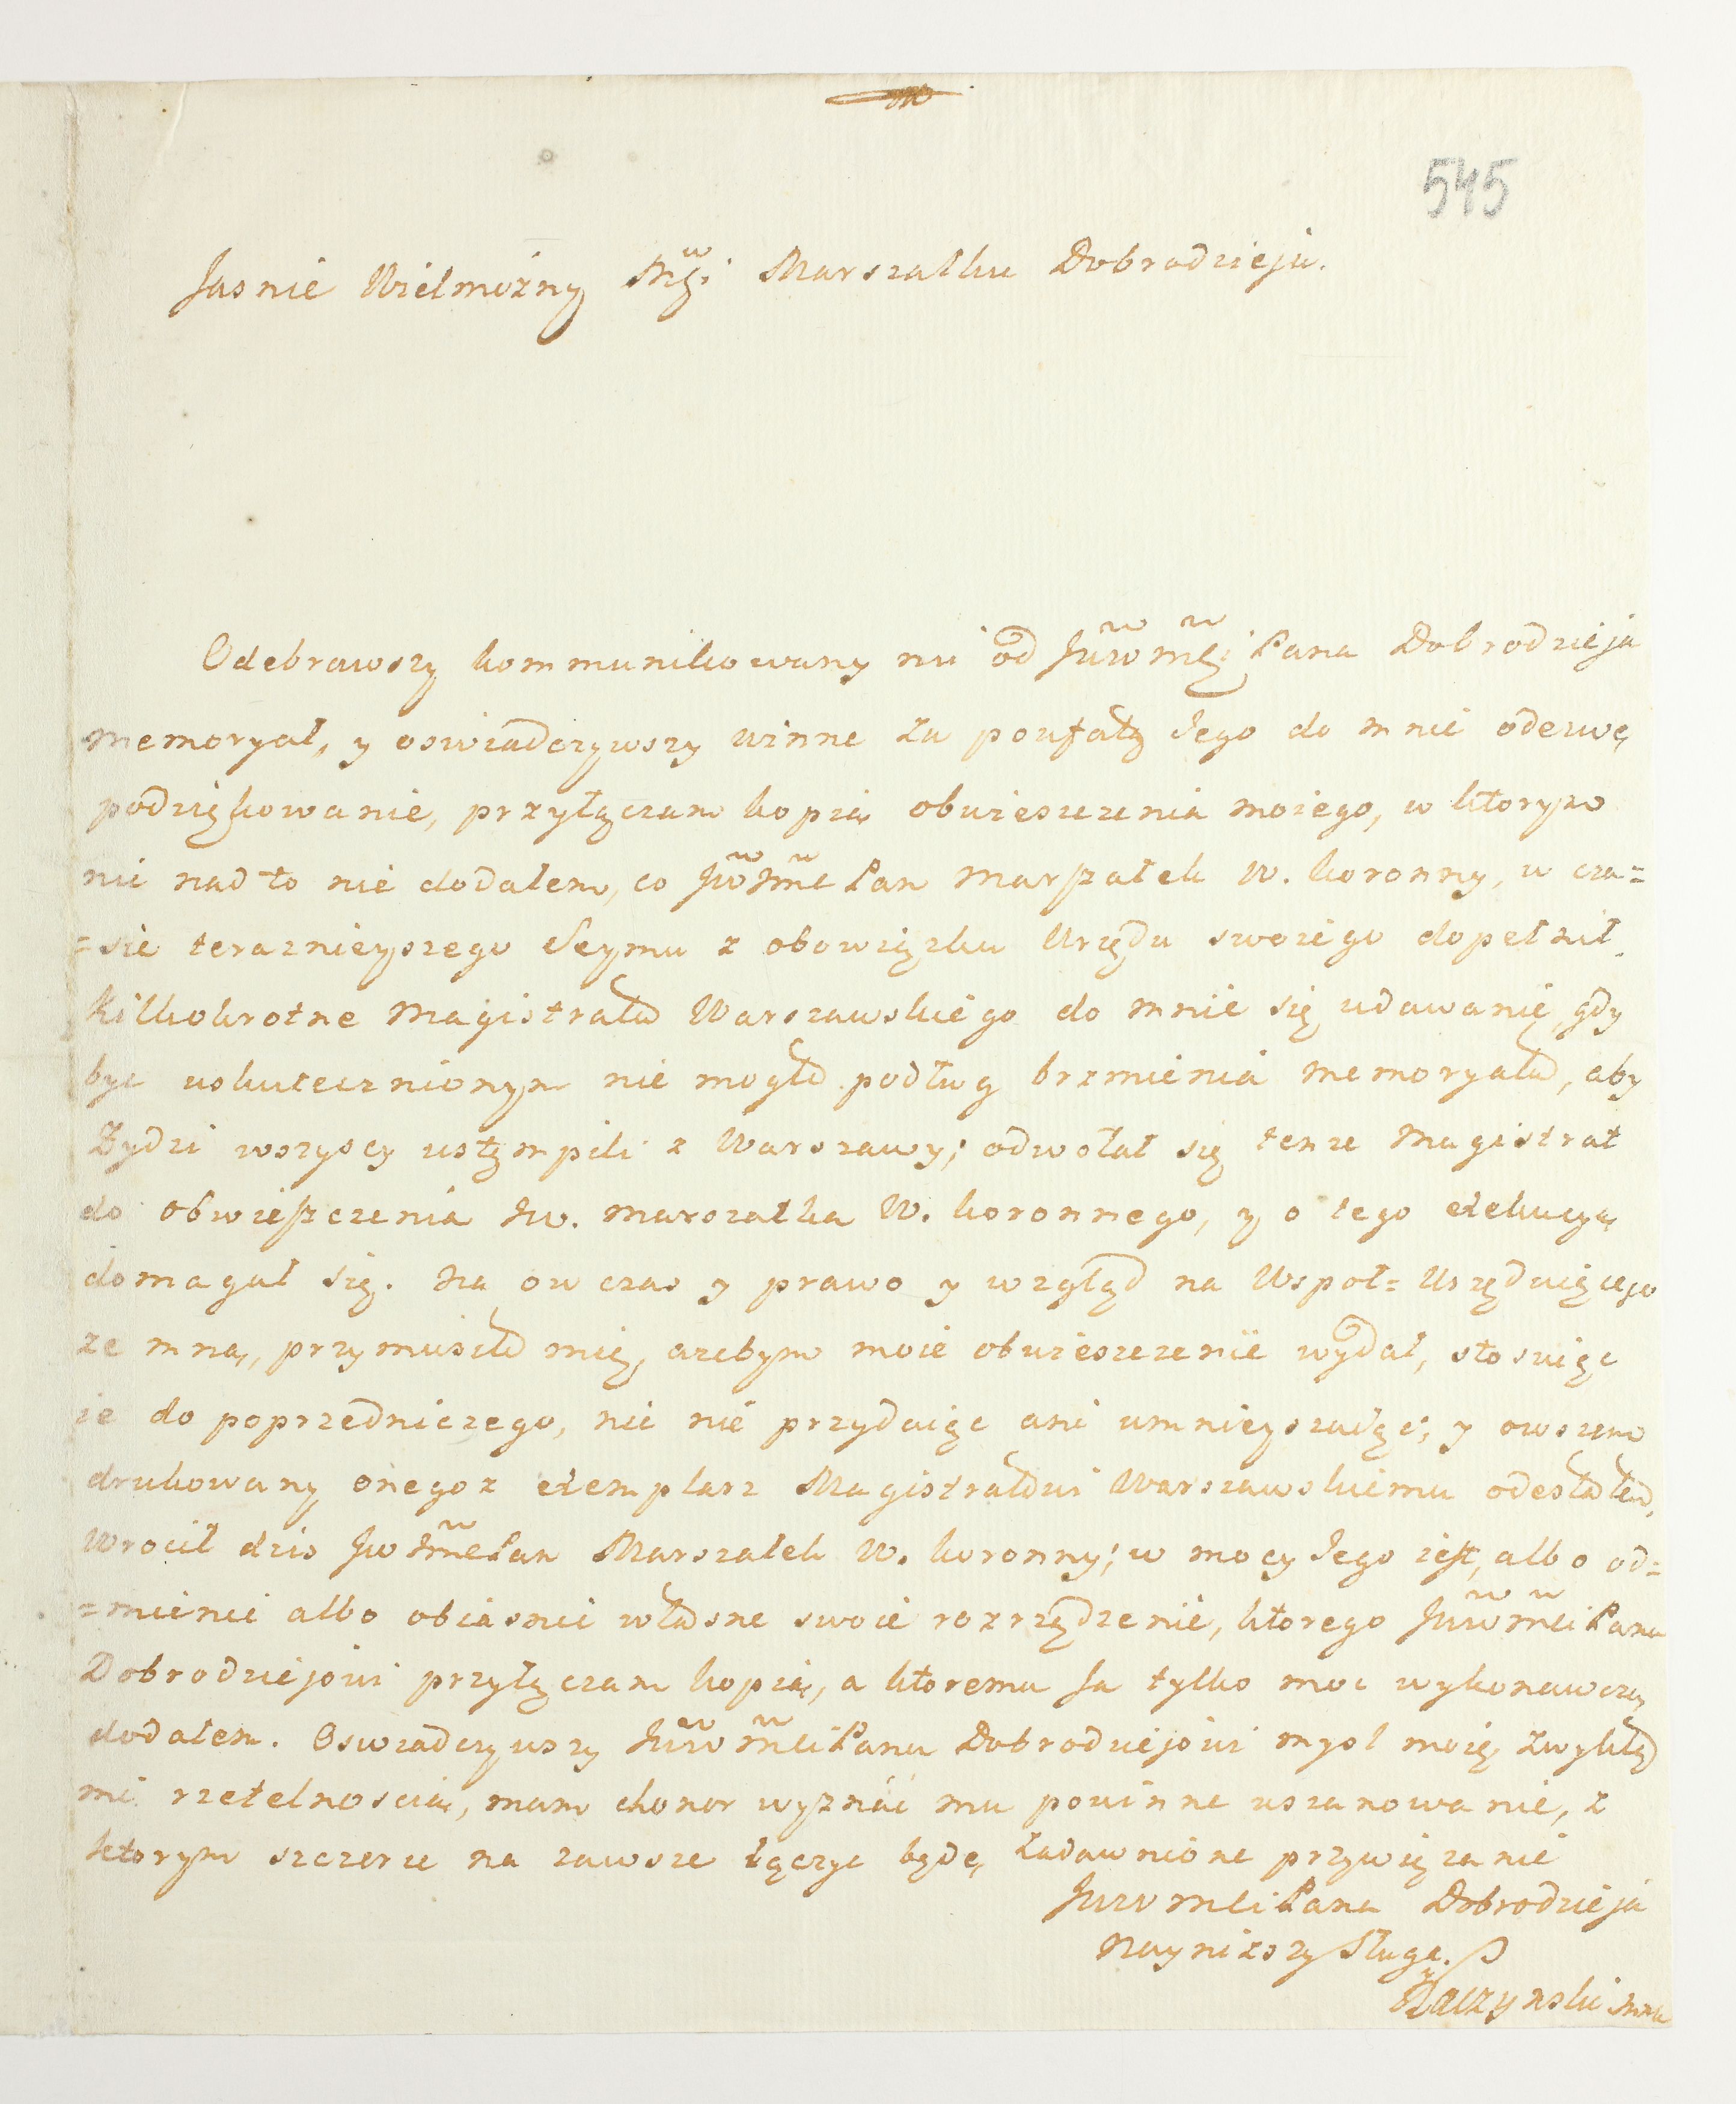 545
Jasnie Wielmożny Mci Marszałku Dobrodzieju.
Odebrawszy kommunikowany mi od JWWMCi Pana Dobrodzieja
memoryał, y oswiadczywszy winne za poufałą Jego do mnie odezwę
podziękowanie, przyłączam kopią obwieszczenia moiego, w ktorym
nic nad to nie dodałem, co JWJMc Pan Marszałek W. koronny, w cza=
=sie teraznieyszego Seymu z obowiązku Urzędu swoiego dopełnił.
Kilkokrotne Magistratu Warszawskiego do mnie się udawanie, gdy
byc uskutecznionym nie mogło podług brzmienia memoryału, aby
Zydzi wszyscy ustąmpili z Warszawy; odwołał się tenze Magistrat
do obwieszczenia Jw. Marszałka W. koronnego, y o tego exekucyą
domagał się. Na ow czas y prawo y wzgląd na Wspoł=Urzęduiącego
ze mną, przymusiło mię, azebym moie obwieszczenie wydał, stosuiąc
ie do poprzedniczego, nic nie przydaiąc ani umnieyszaiąc; y owszem
drukowany onegoz exemplarz Magistratowi Warszawskiemu odesłałem,
Wrocił dzis JwJmcPan Marszałek W. koronny; w mocy Jego iest, albo od=
=mienic albo obiasnic własne swoie rozrządzenie, ktorego JWWMCi Panu
Dobrodziejowi przyłączam kopią, a ktoremu Ja tylko moc wykonawczą
dodałem. Oswiadczywszy JWWMCi Panu Dobrodziejowi mysl moią zwykłą
mi rzetelnoscią, mam chonor wyznać mu powinne uszanowanie, z
ktorym szczerze na zawsze łączyc będę zadawnione przywiązanie
JWWMCi Pana Dobrodzieja
Nayniższy Sługa.
Raczynski